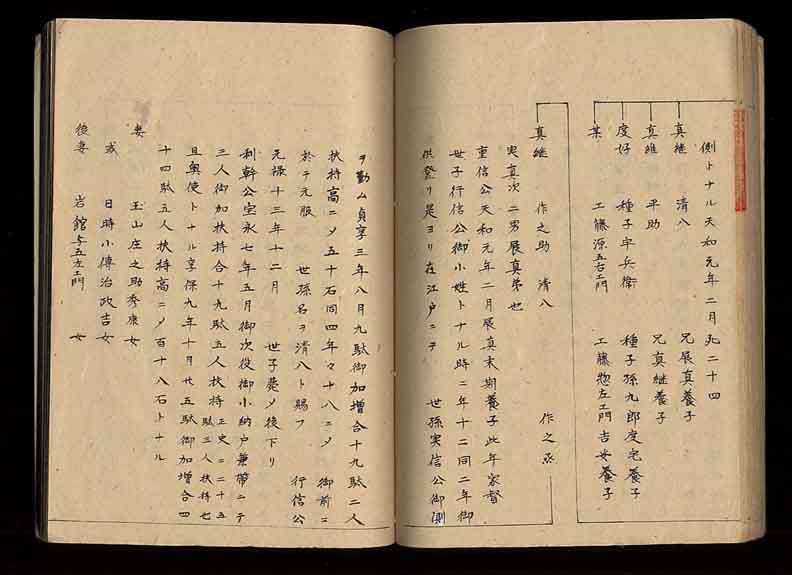 側トナル天和元年二月死二十四
真継 清八 兄展真養子
真維 平助 兄真継養子
度好 種子平兵衛 種子孫九郎度宅養子
某 工藤源五右エ門 工藤惣左エ門吉安養子
真継 作之助 清八 作之丞
実真次二男展真弟也
重信公天和元年二月展真末期養子此年家督
世子行信公御小姓トナル時ニ年十二同二年御
供登リ是ヨリ在江戸ニテ 世孫実信公御側
ヲ勤ム貞享三年八月九駄御加増合十九駄二人
扶持高ニメ五十石同四年々十八ニメ 御前ニ
於テ元服 世孫名ヲ清八ト賜フ 行信公
元禄十三年十二月 世子薨メ後下リ
利幹公宝永七年五月御次役御小納戸兼帯ニテ
三人御加扶持合十九駄五人扶持 正史ニ二十五駄三人扶持也
且奥使トナル享保九年十月廿五駄御加増合四
十四駄五人扶持高ニメ百十八石トナル
妻 玉山庄之助秀康女
或 日時小傳治政吉女
後妻 岩館与五左エ門 女